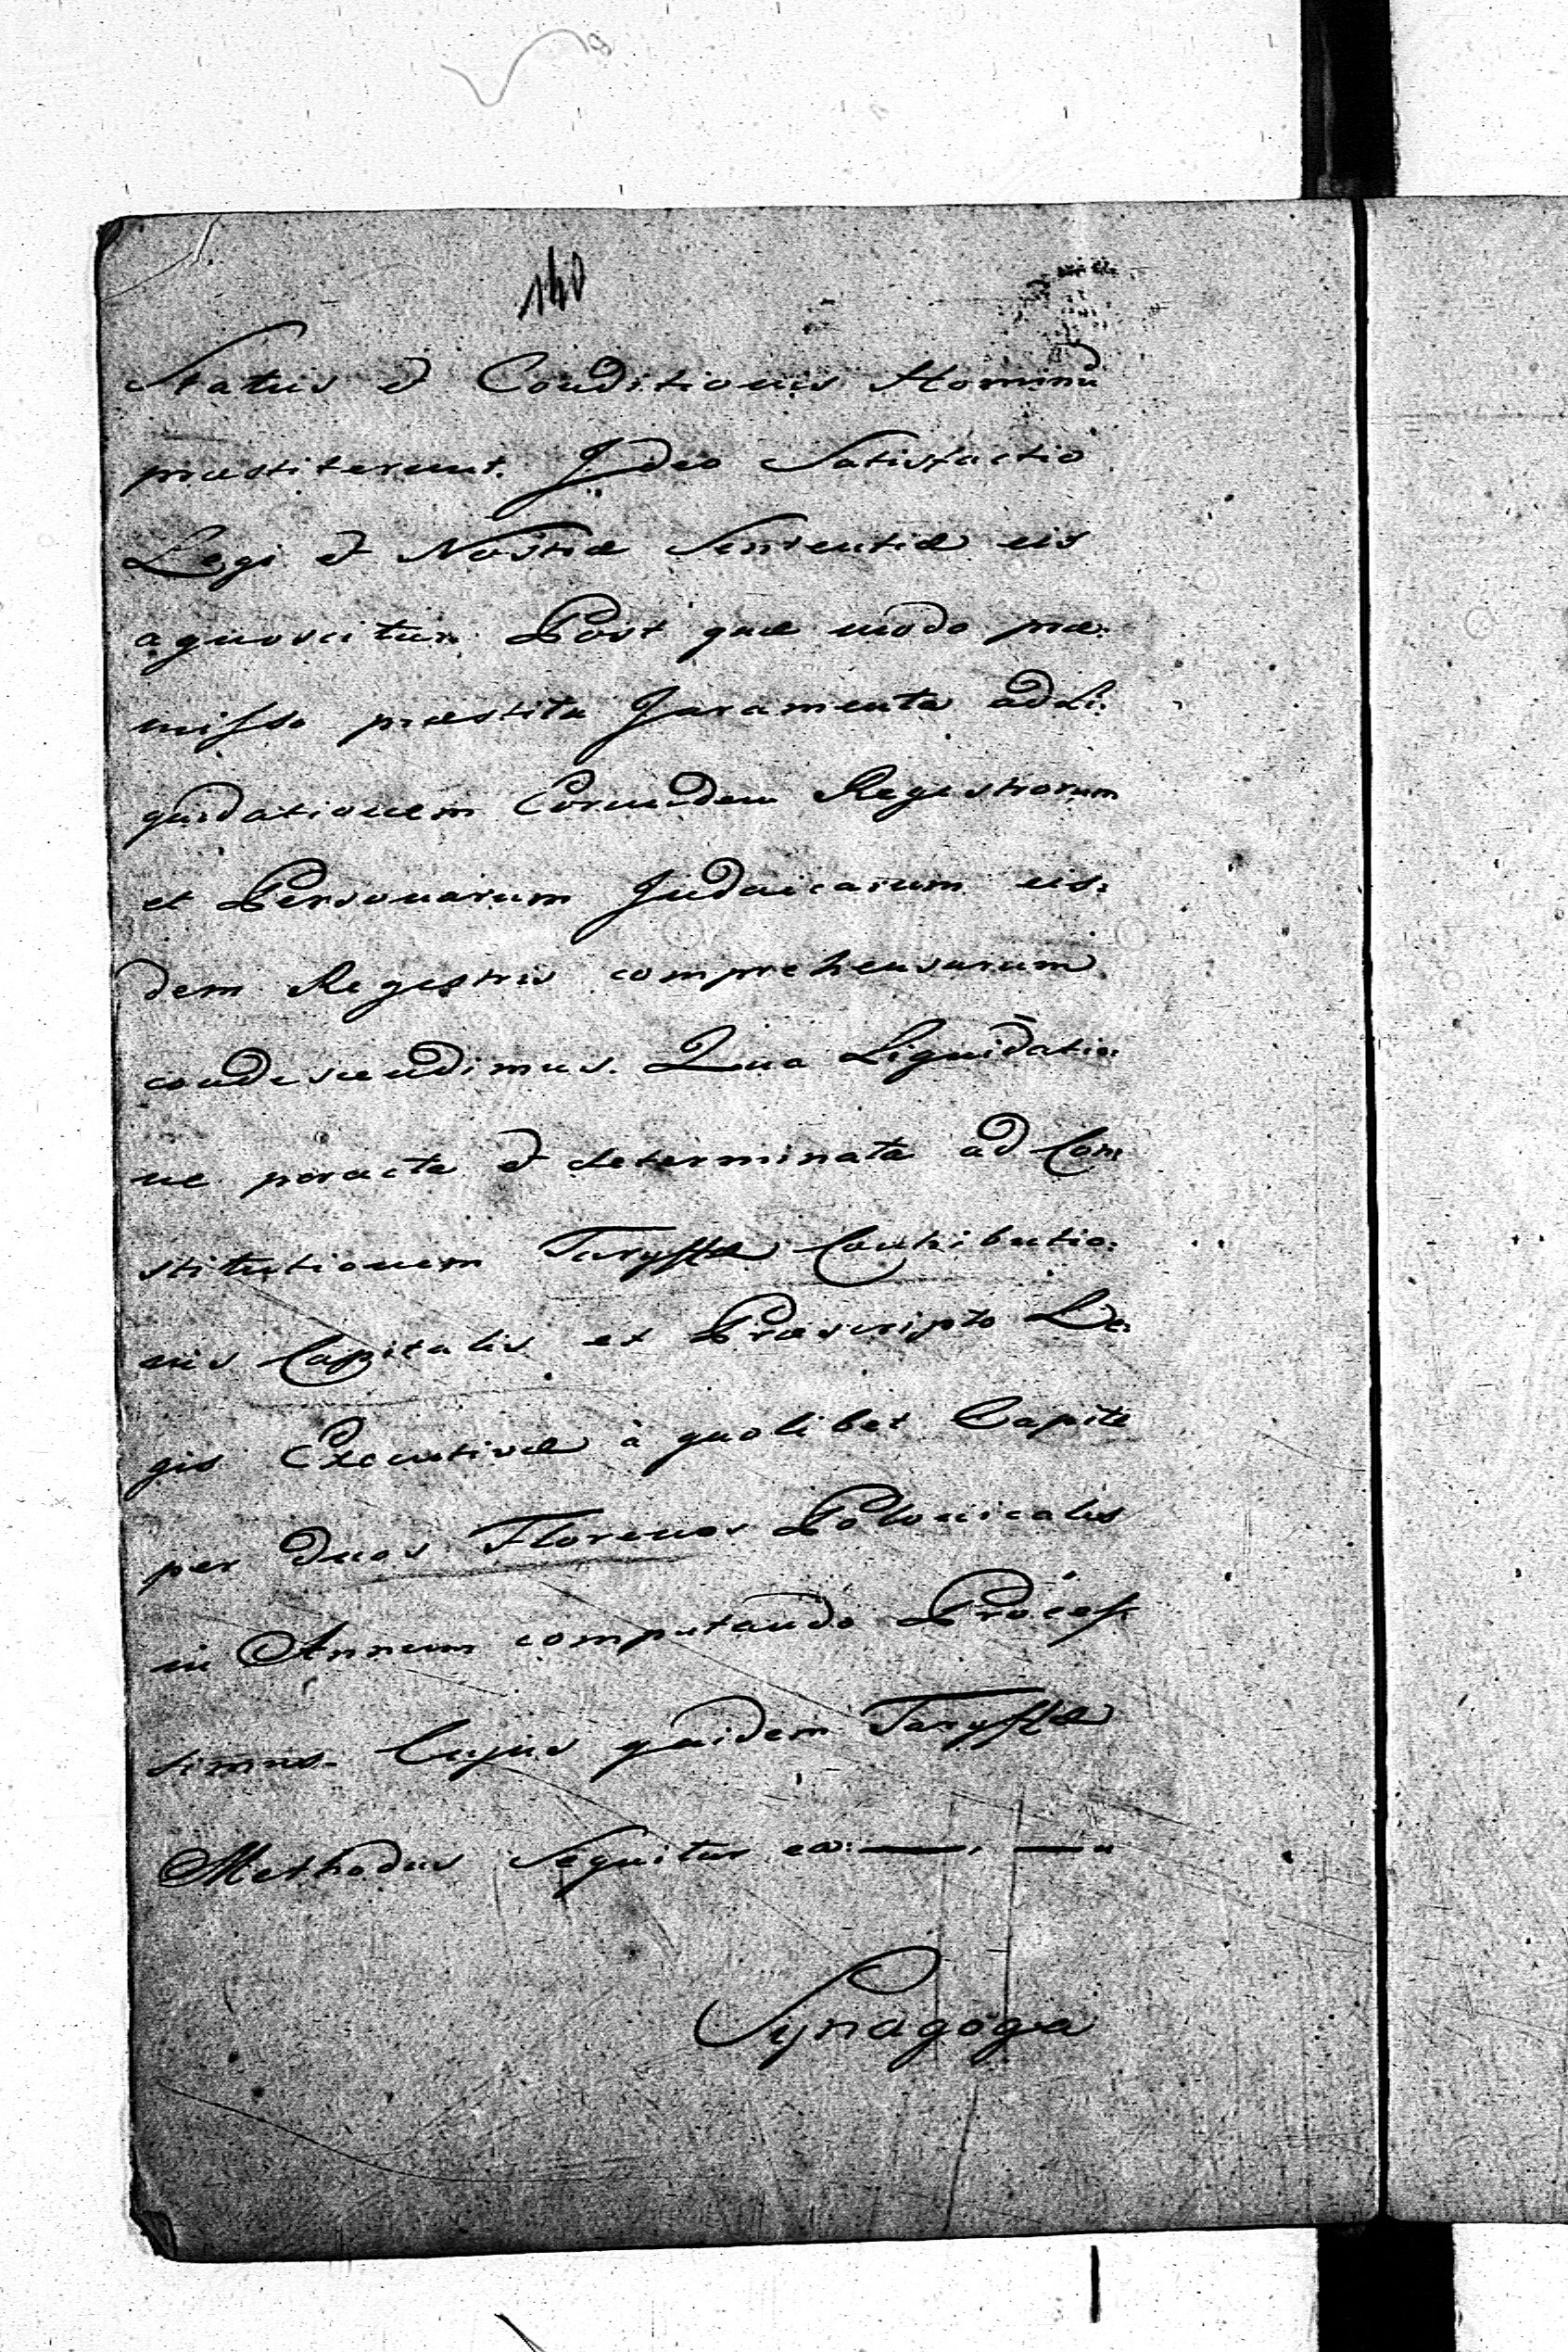 140
Status et Conditionis Hominū
præstiterunt. Ideo Satisfactio
Legi et Nostræ Sententiæ eis
agnoscitur. Post quæ modo præ:
misso præstita Juramenta ad Li:
quidationem Eorumdem Regestrorum
et Personarum Judaicarum eis:
dem Regestris comprehensarum
condescendimus. Qua Liquidatio:
ne peracta et determinata ad Con:
stitutionem Taryffæ Contributio:
nis Capitalis ex Præscripto Le:
gis Executivæ à quolibet Capite
per duos Florenos Polonicales
in Annum computando Proces:
simus. Cujus quidem Taryffæ
Methodus sequitur ea: —. —
Synagoga